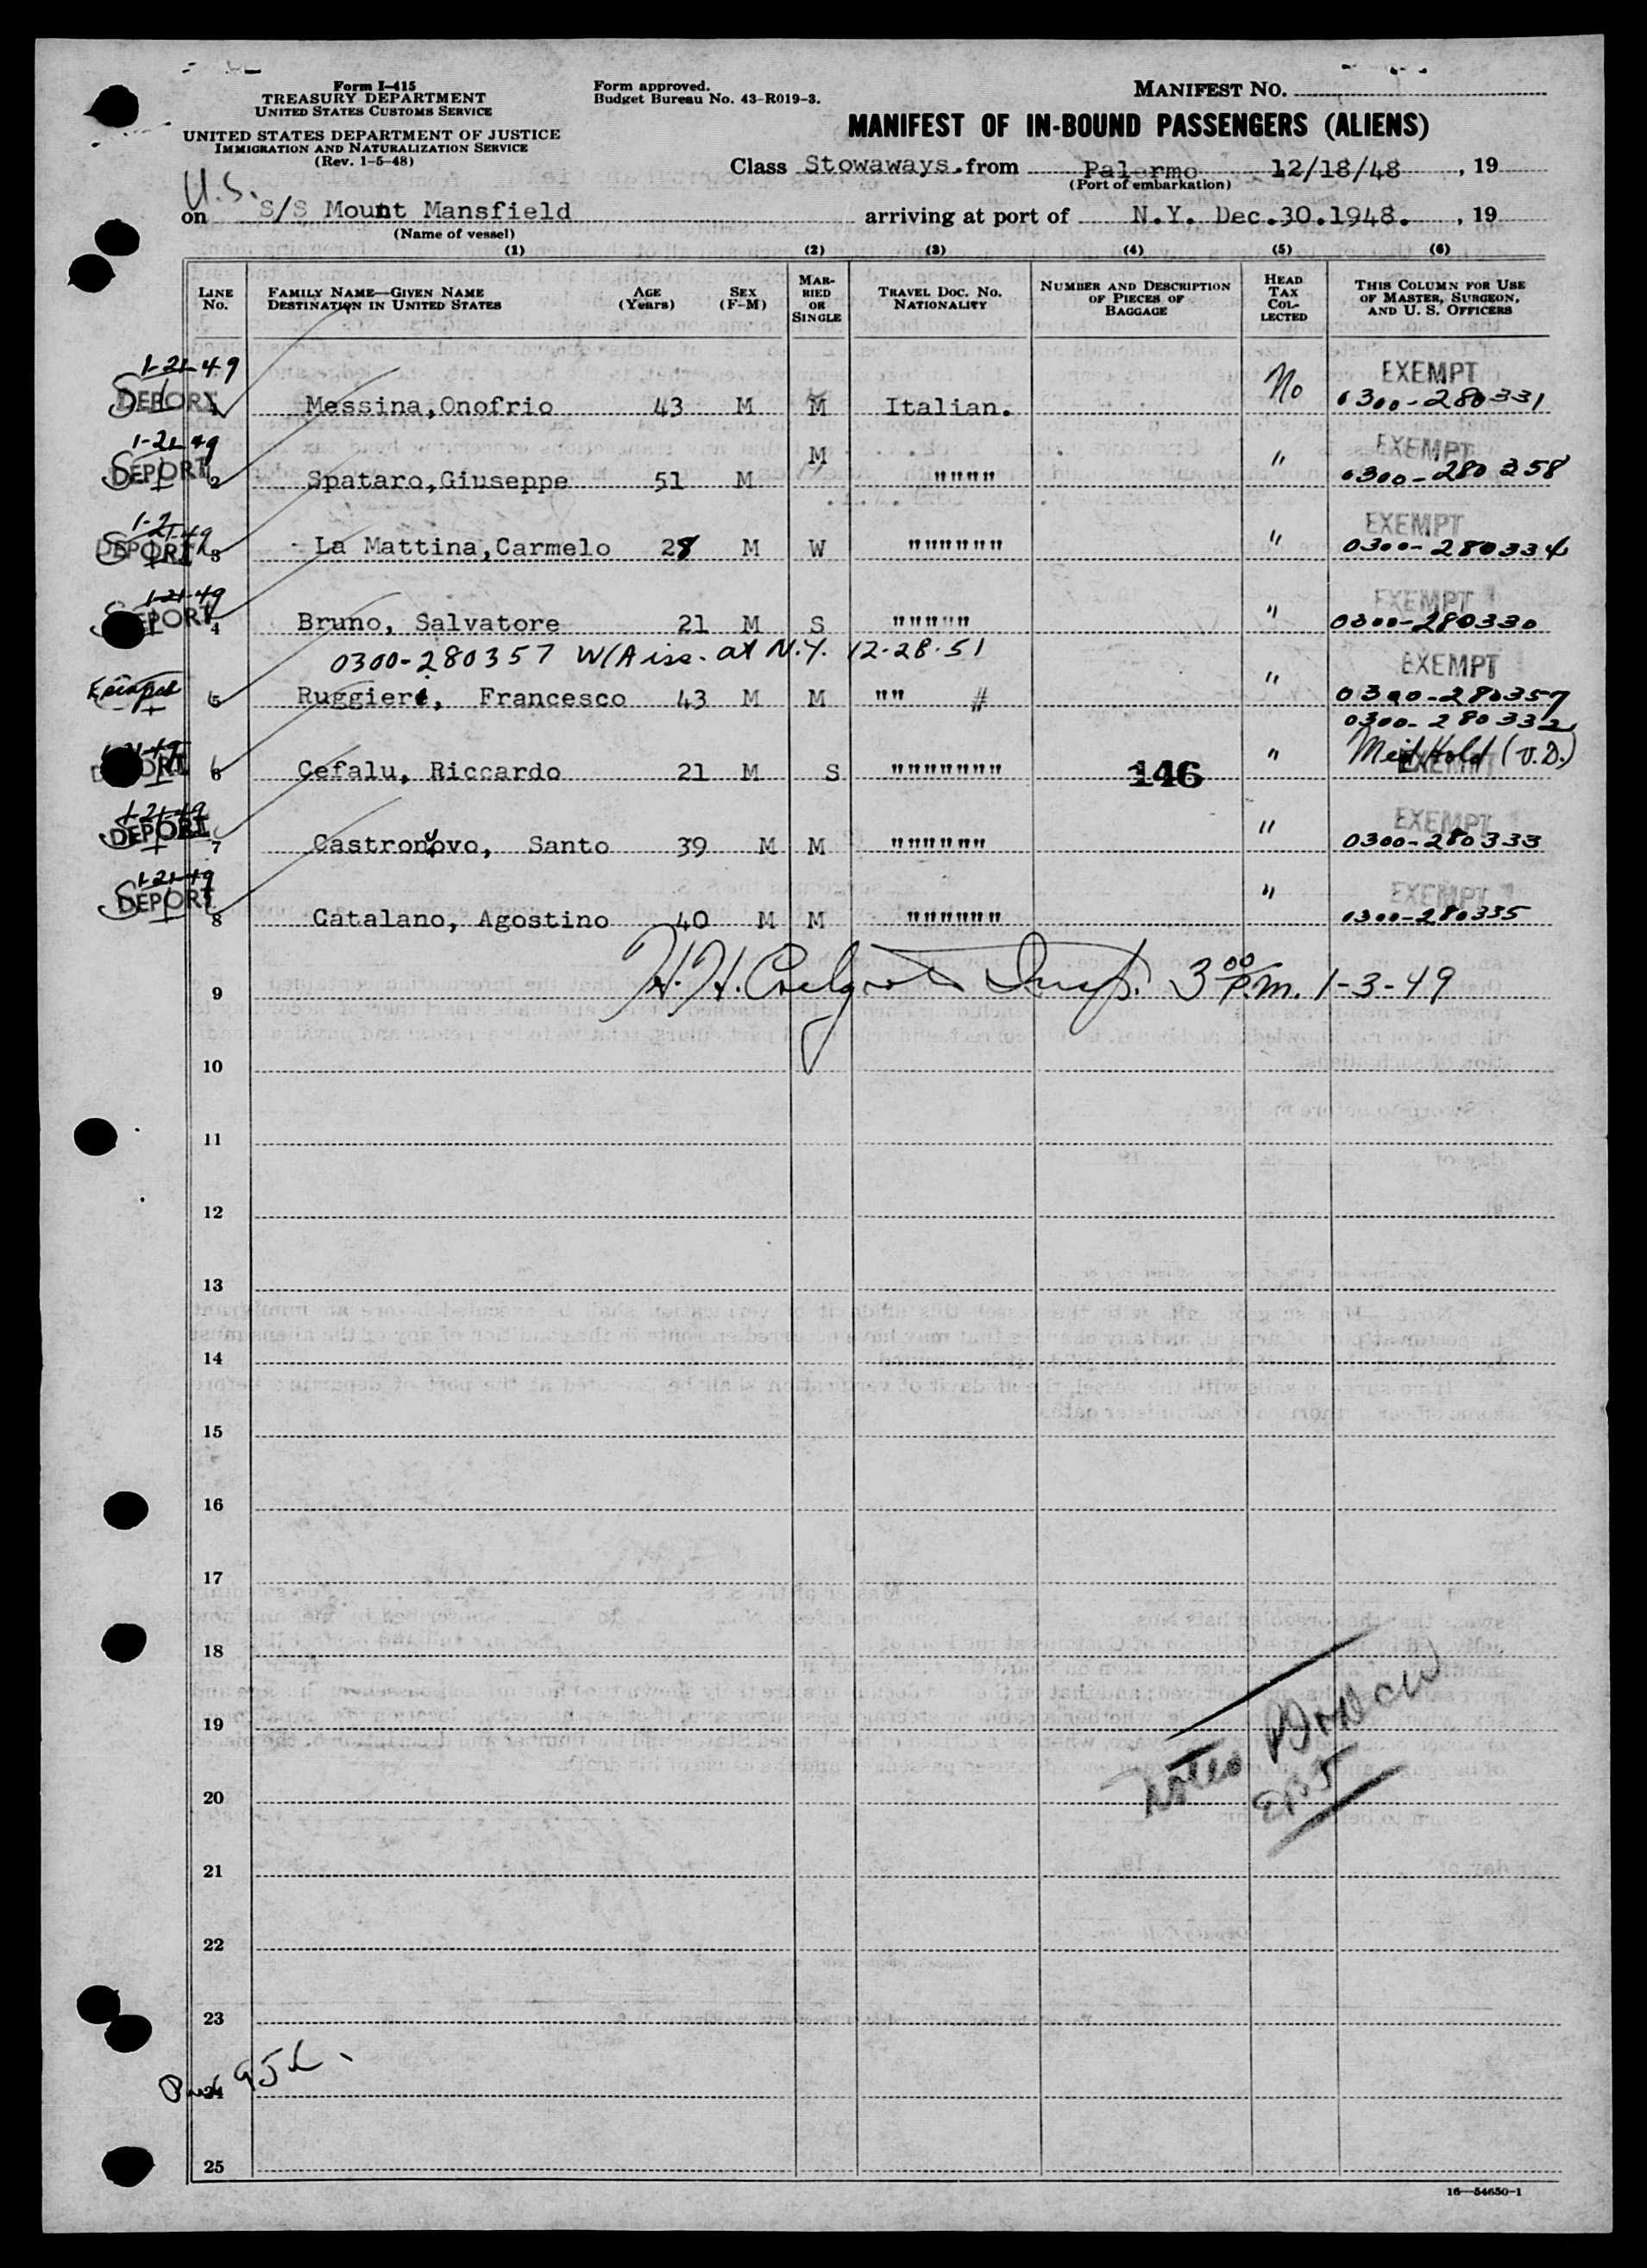 Form I-415
TREASURY DEPARTMENT
UNITED STATES CUSTOMS SERVICE
UNITED STATES DEPARTMENT OF JUSTICE
IMMIGRATION AND NATURALIZATION SERVICE
(Rev. 1-5-48)
Form approved.
Budget Bureau No. 43-R019-3.
MANIFEST NO.
MANIFEST OF IN-BOUND PASSENGERS (ALIENS)
Class Stowaways. from Palermo 12/18/48, 19
(Port of embarkation)
U.S.
on S/S Mount Mansfield arriving at port of N.Y. Dec.30.1948., 19
(Name of vessel)
(1) (2) (3) (4) (5) (6)
LINE NO. FAMILY NAME—GIVEN NAME DESTINATION IN UNITED STATES AGE (Years) SEX (F-M) MARRIED OR SINGLE TRAVEL DOC. NO. NATIONALITY NUMBER AND DESCRIPTION OF PIECES OF BAGGAGE HEAD TAX COLLECTED THIS COLUMN FOR USE OF MASTER, SURGEON, AND U. S. OFFICERS
1-21-49 EXEMPT
DEPORT 1 Messina,Onofrio 43 M M Italian. No 0300-280331
1-21-49 EXEMPT
DEPORT 2 Spataro,Giuseppe 51 M M """" " 0300-280358
1-21-49 EXEMPT
DEPORT 3 La Mattina,Carmelo 28 M W """""" " 0300-280334
1-21-49 EXEMPT
DEPORT 4 Bruno, Salvatore 21 M S """""" " 0300-280330
0300-280357 W/A iss. at N.Y. 12-28-51 EXEMPT
Escaped 5 Ruggieri, Francesco 43 M M "" # " 0300-280357
0300-280332
DEPORT 6 Cefalu, Riccardo 21 M S """"""" 146 " Med Hold (V.D.) EXEMPT
1-21-49 EXEMPT
DEPORT 7 Castronovo, Santo 39 M M """"""" " 0300-280333
1-21-49 EXEMPT
DEPORT 8 Catalano, Agostino 40 M M """""" " 0300-280335
9 H.H. Insp. 3 00 P.m. 1-3-49
10
11
12
13
14
15
16
17
18
19
20
21
22
23
24
25
16—54650-1